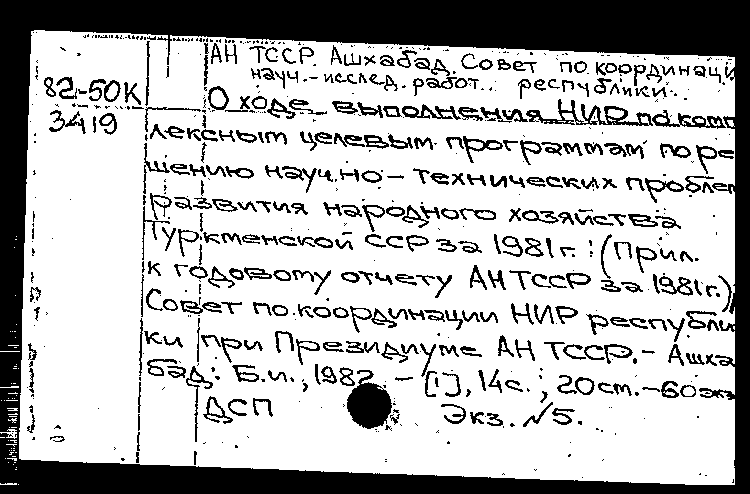 АН ТССР. Ашхабад. Совет по координаци
науч.-исслед. работ.. республики..
82-50К
3419
О ходе выполнения НИР по комп
лексным целевым программам по ре
шению науч.но-технических проблем
развития народного хозяйства
Туркменской ССР за 1981г.: (Прил.
к годовому отчету АН ТССР за 1981г.)/
Совет по координации НИР республи
ки при Президиуме АН ТССР.- Ашха
бад: Б.и., 1982. - [1], 14с.; 20см.-60экз
ДСП Экз. №5.